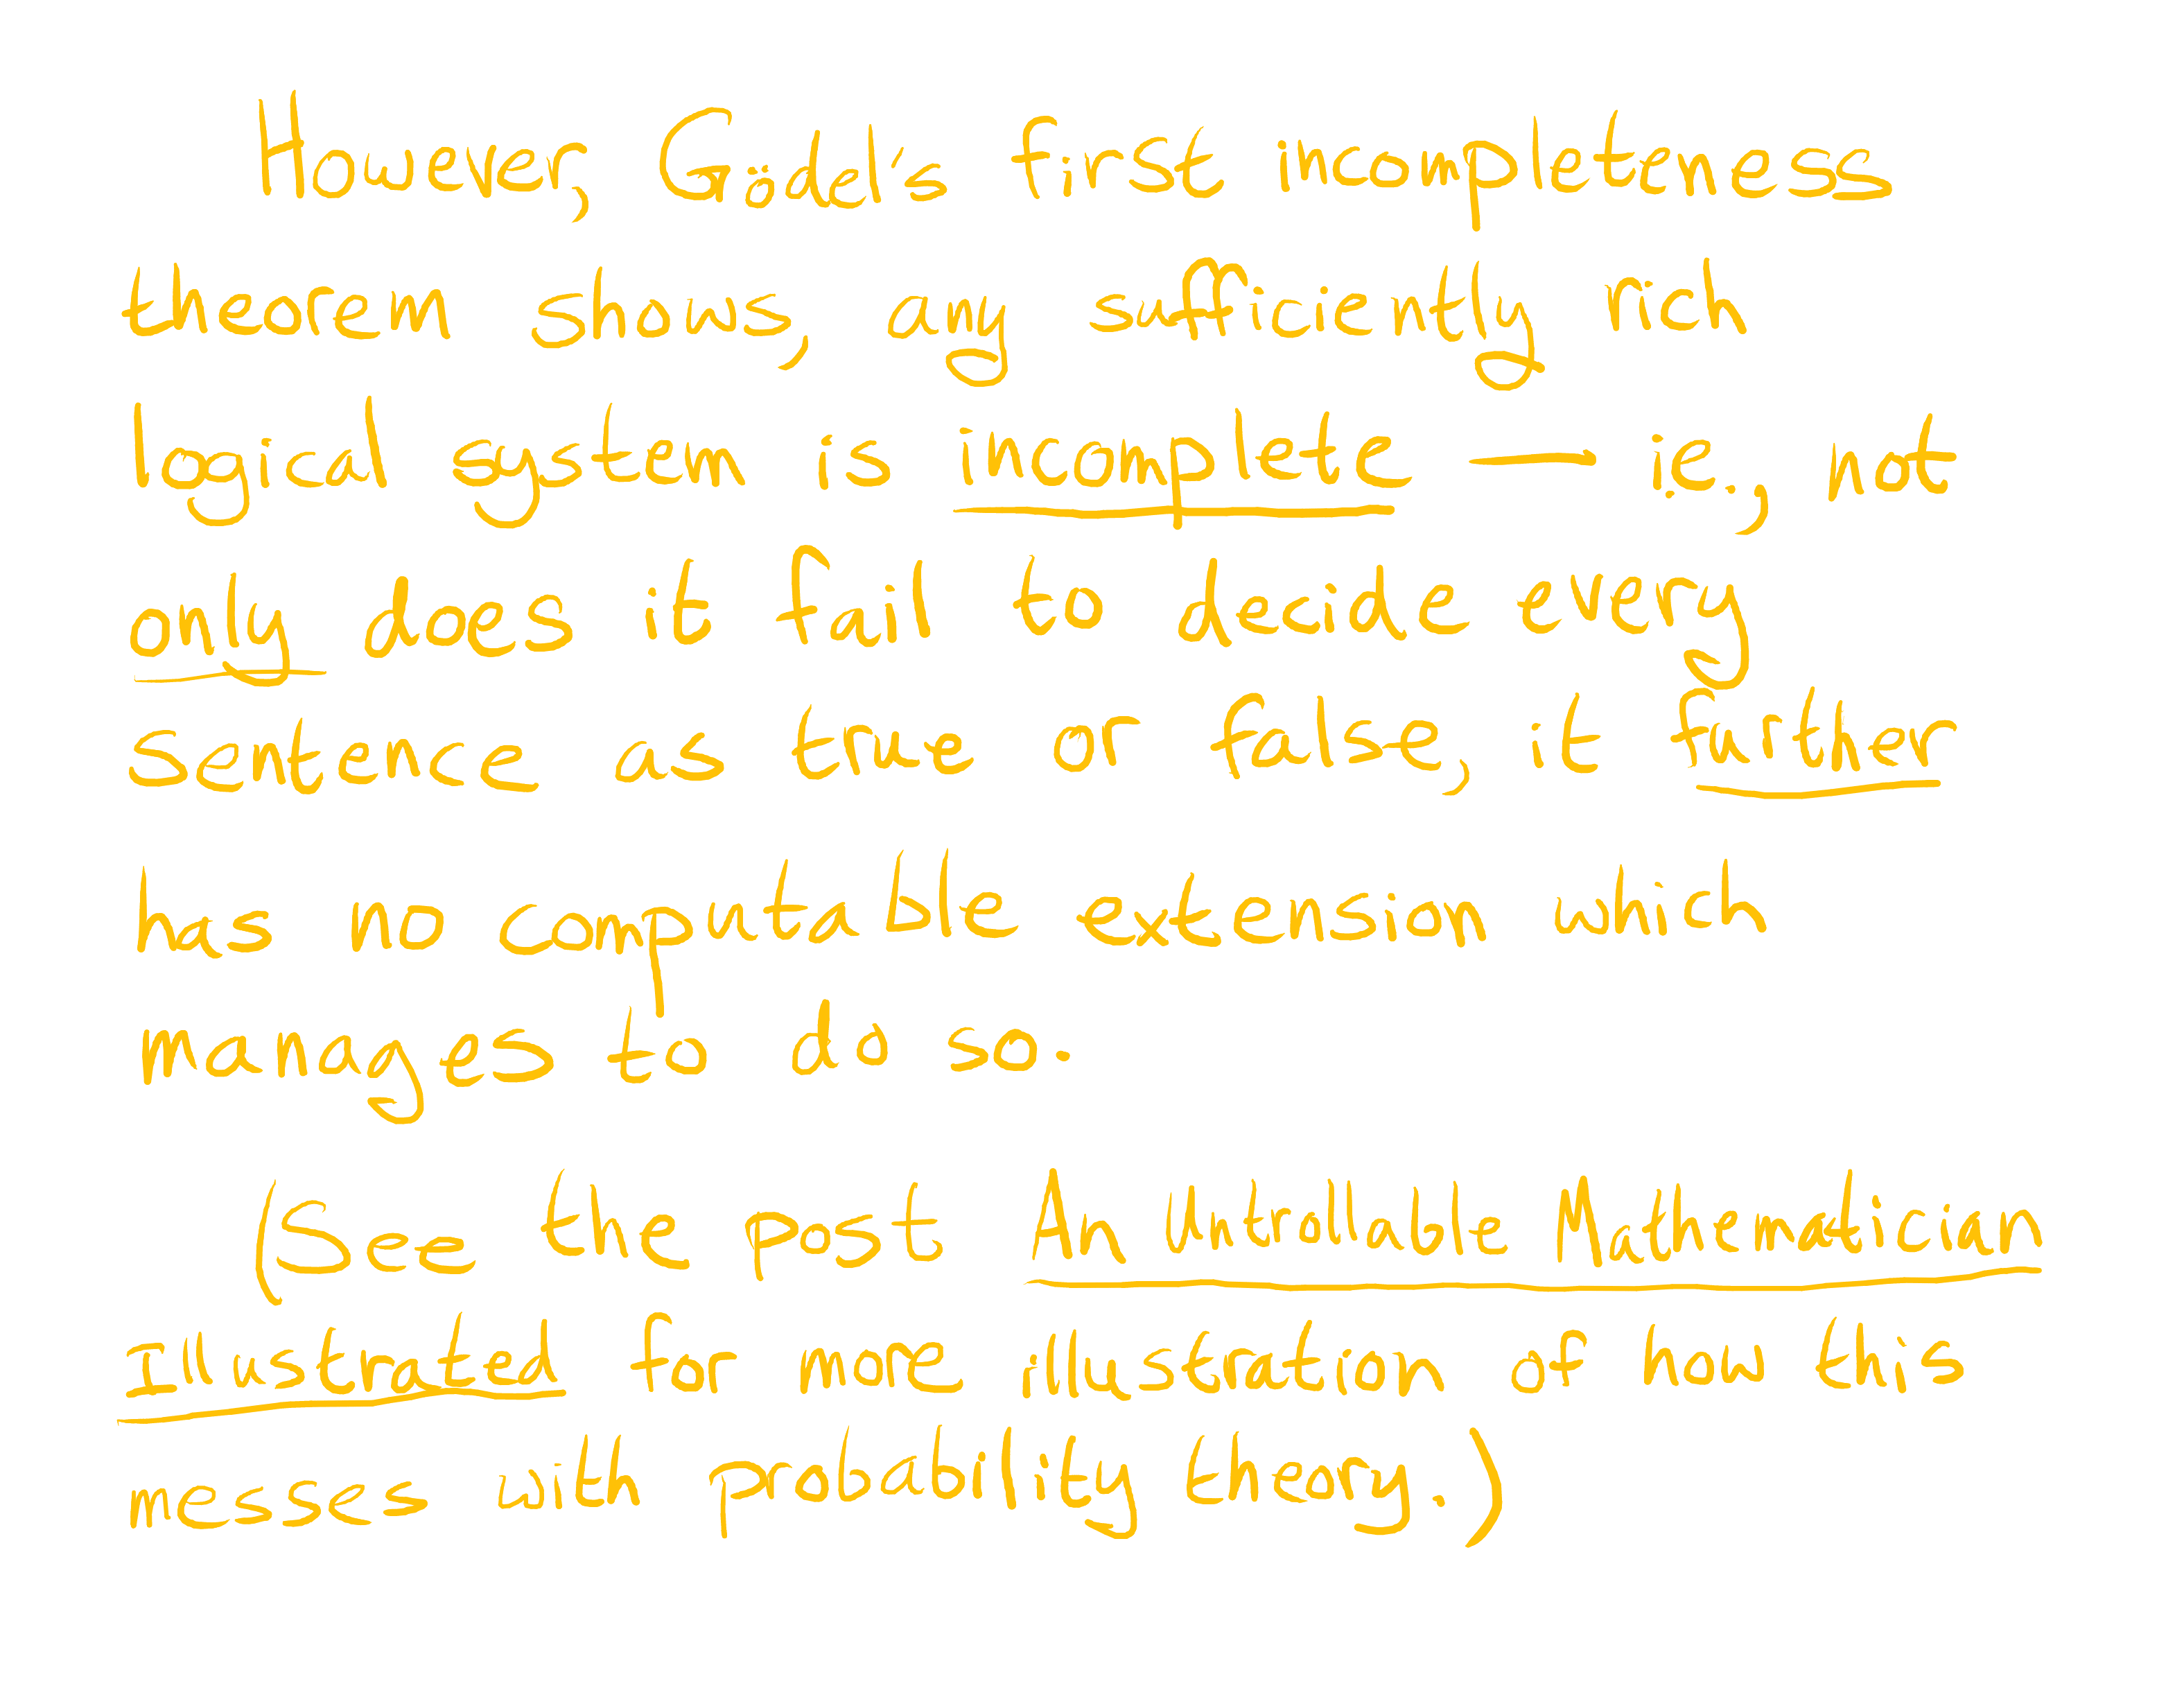 However, Gödel's first incompleteness
theorem shows, any sufficiently rich
logical system is incomplete — ie., not
only does it fail to decide every
sentence as true or false, it further
has no computable extension which
manages to do so.
(See the post An Untrollable Mathematician
Illustrated for more illustration of how this
messes with probability theory.)